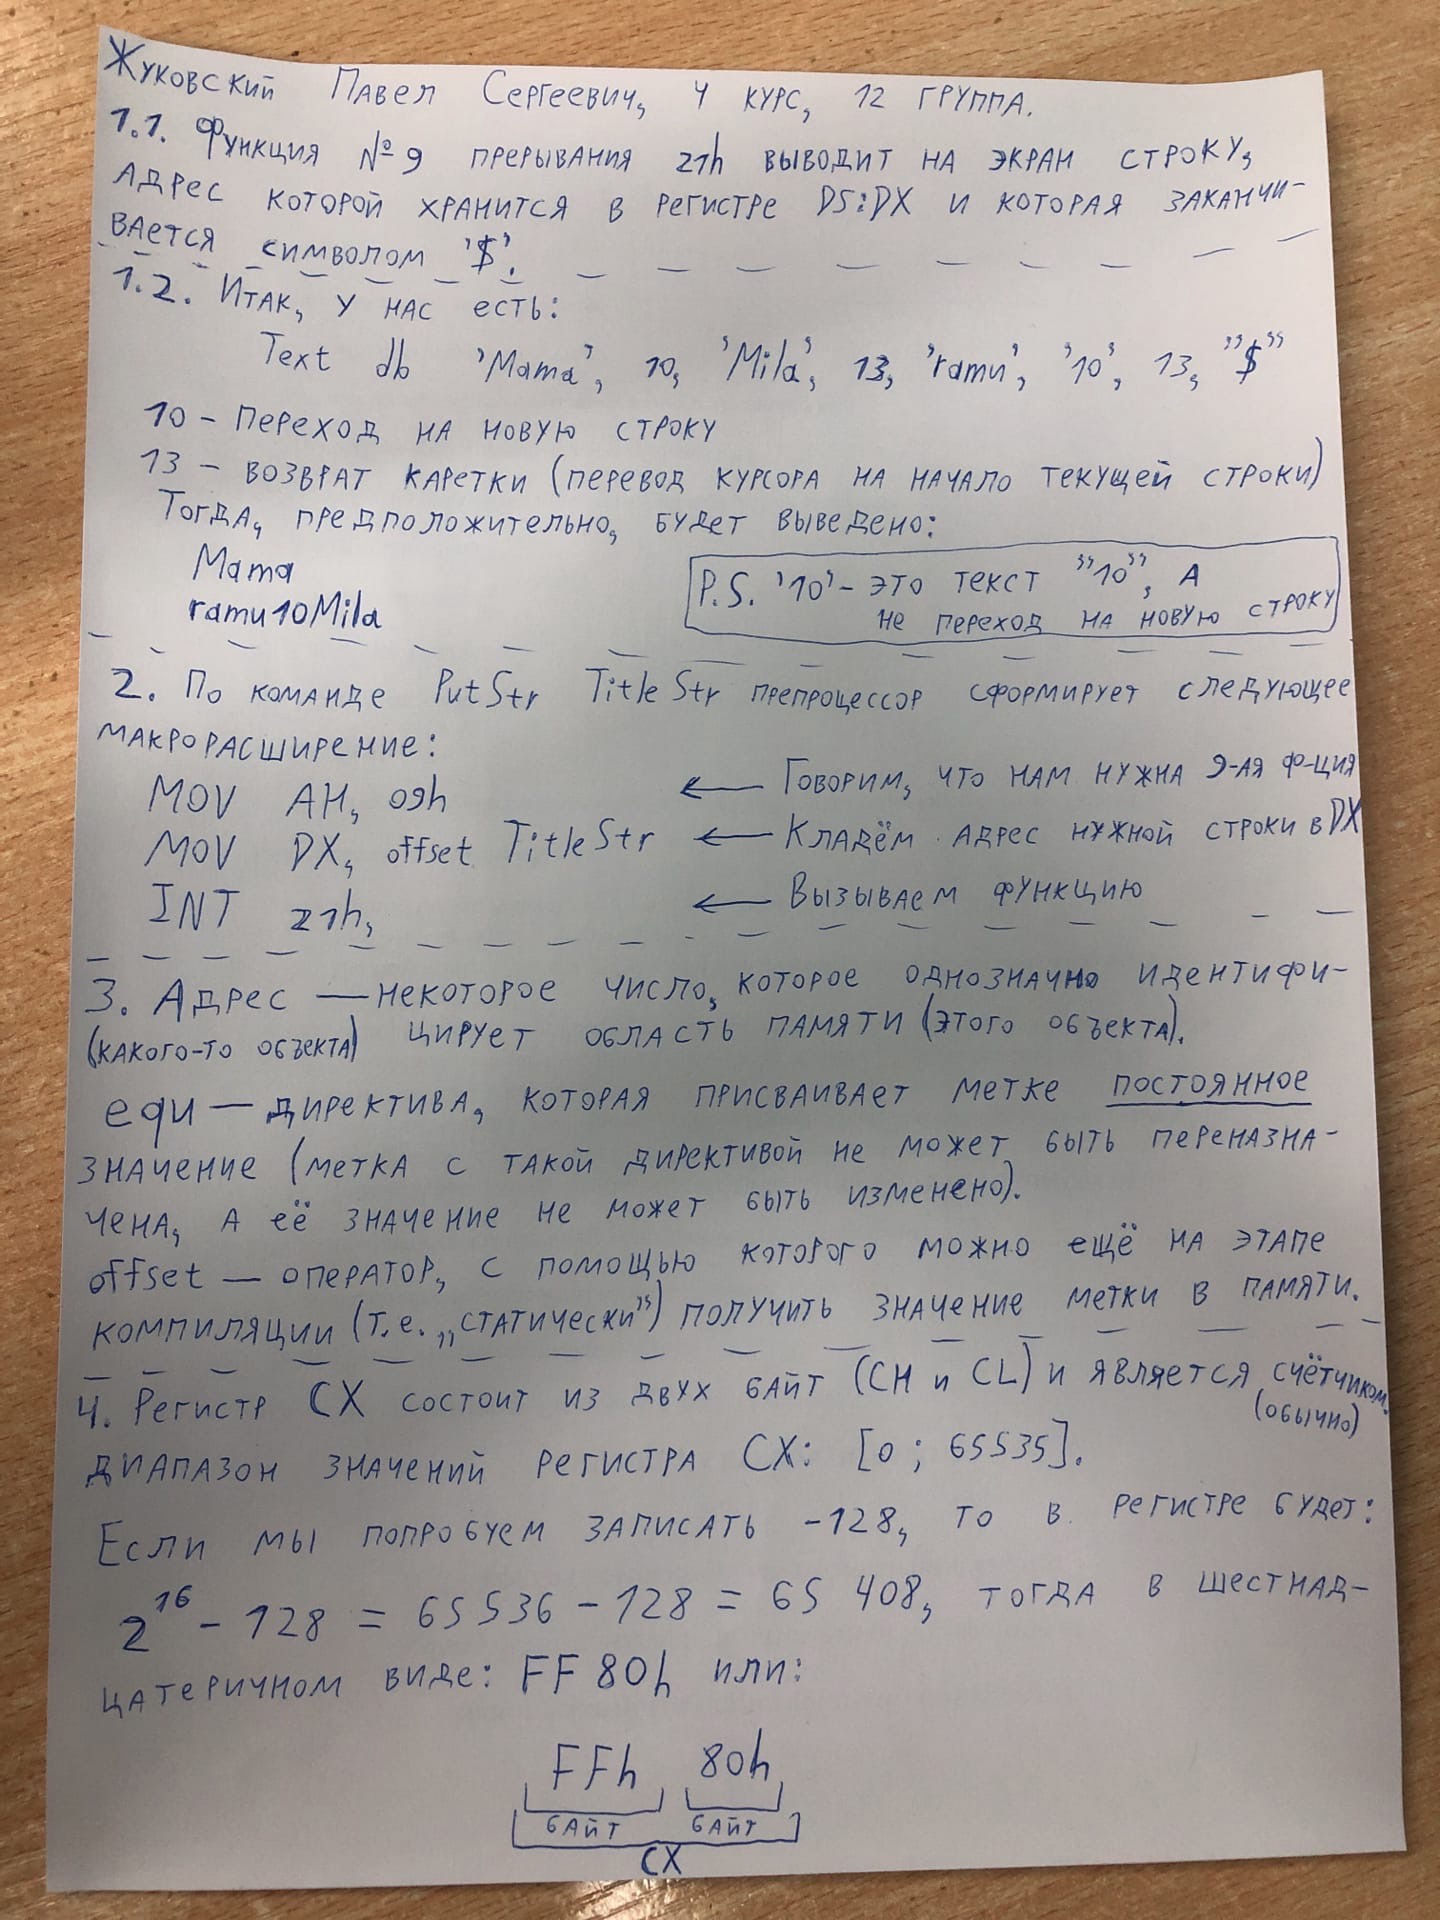 Жуковский Павел Сергеевич, 4 курс, 12 группа.
1.1. Функция №9 прерывания 21h выводит на экран строку,
адрес которой хранится в регистре DS:DX и которая заканчи-
вается символом '$'.
1.2. Итак, у нас есть:
Text db 'Mama', 10, 'Mila', 13, 'ramu', '10', 13, "$"
10 - переход на новую строку
13 - возврат каретки (перевод курсора на начало текущей строки)
Тогда, предположительно, будет выведено:
Mama
ramu10Mila
P.S. '10' - это текст "10", а
не переход на новую строку
2. По команде PutStr TitleStr препроцессор сформирует следующее
макрорасширение:
MOV AH, 09h ← Говорим, что нам нужна 9-ая ф-ция
MOV DX, offset TitleStr ← Кладём адрес нужной строки в DX
INT 21h, ← Вызываем функцию
3. Адрес — некоторое число, которое однозначно идентифи-
(какого-то объекта) цирует область памяти (этого объекта).
equ — директива, которая присваивает метке постоянное
значение (метка с такой директивой не может быть переназна-
чена, а её значение не может быть изменено).
offset — оператор, с помощью которого можно ещё на этапе
компиляции (т.е. „статически") получить значение метки в памяти.
4. Регистр CX состоит из двух байт (CH и CL) и является счётчиком.
(обычно)
Диапазон значений регистра CX: [0 ; 65535].
Если мы попробуем записать -128, то в регистре будет:
2^16 - 128 = 65 536 - 128 = 65 408, тогда в шестнад-
цатеричном виде: FF80h или:
FFh 80h
байт байт
CX